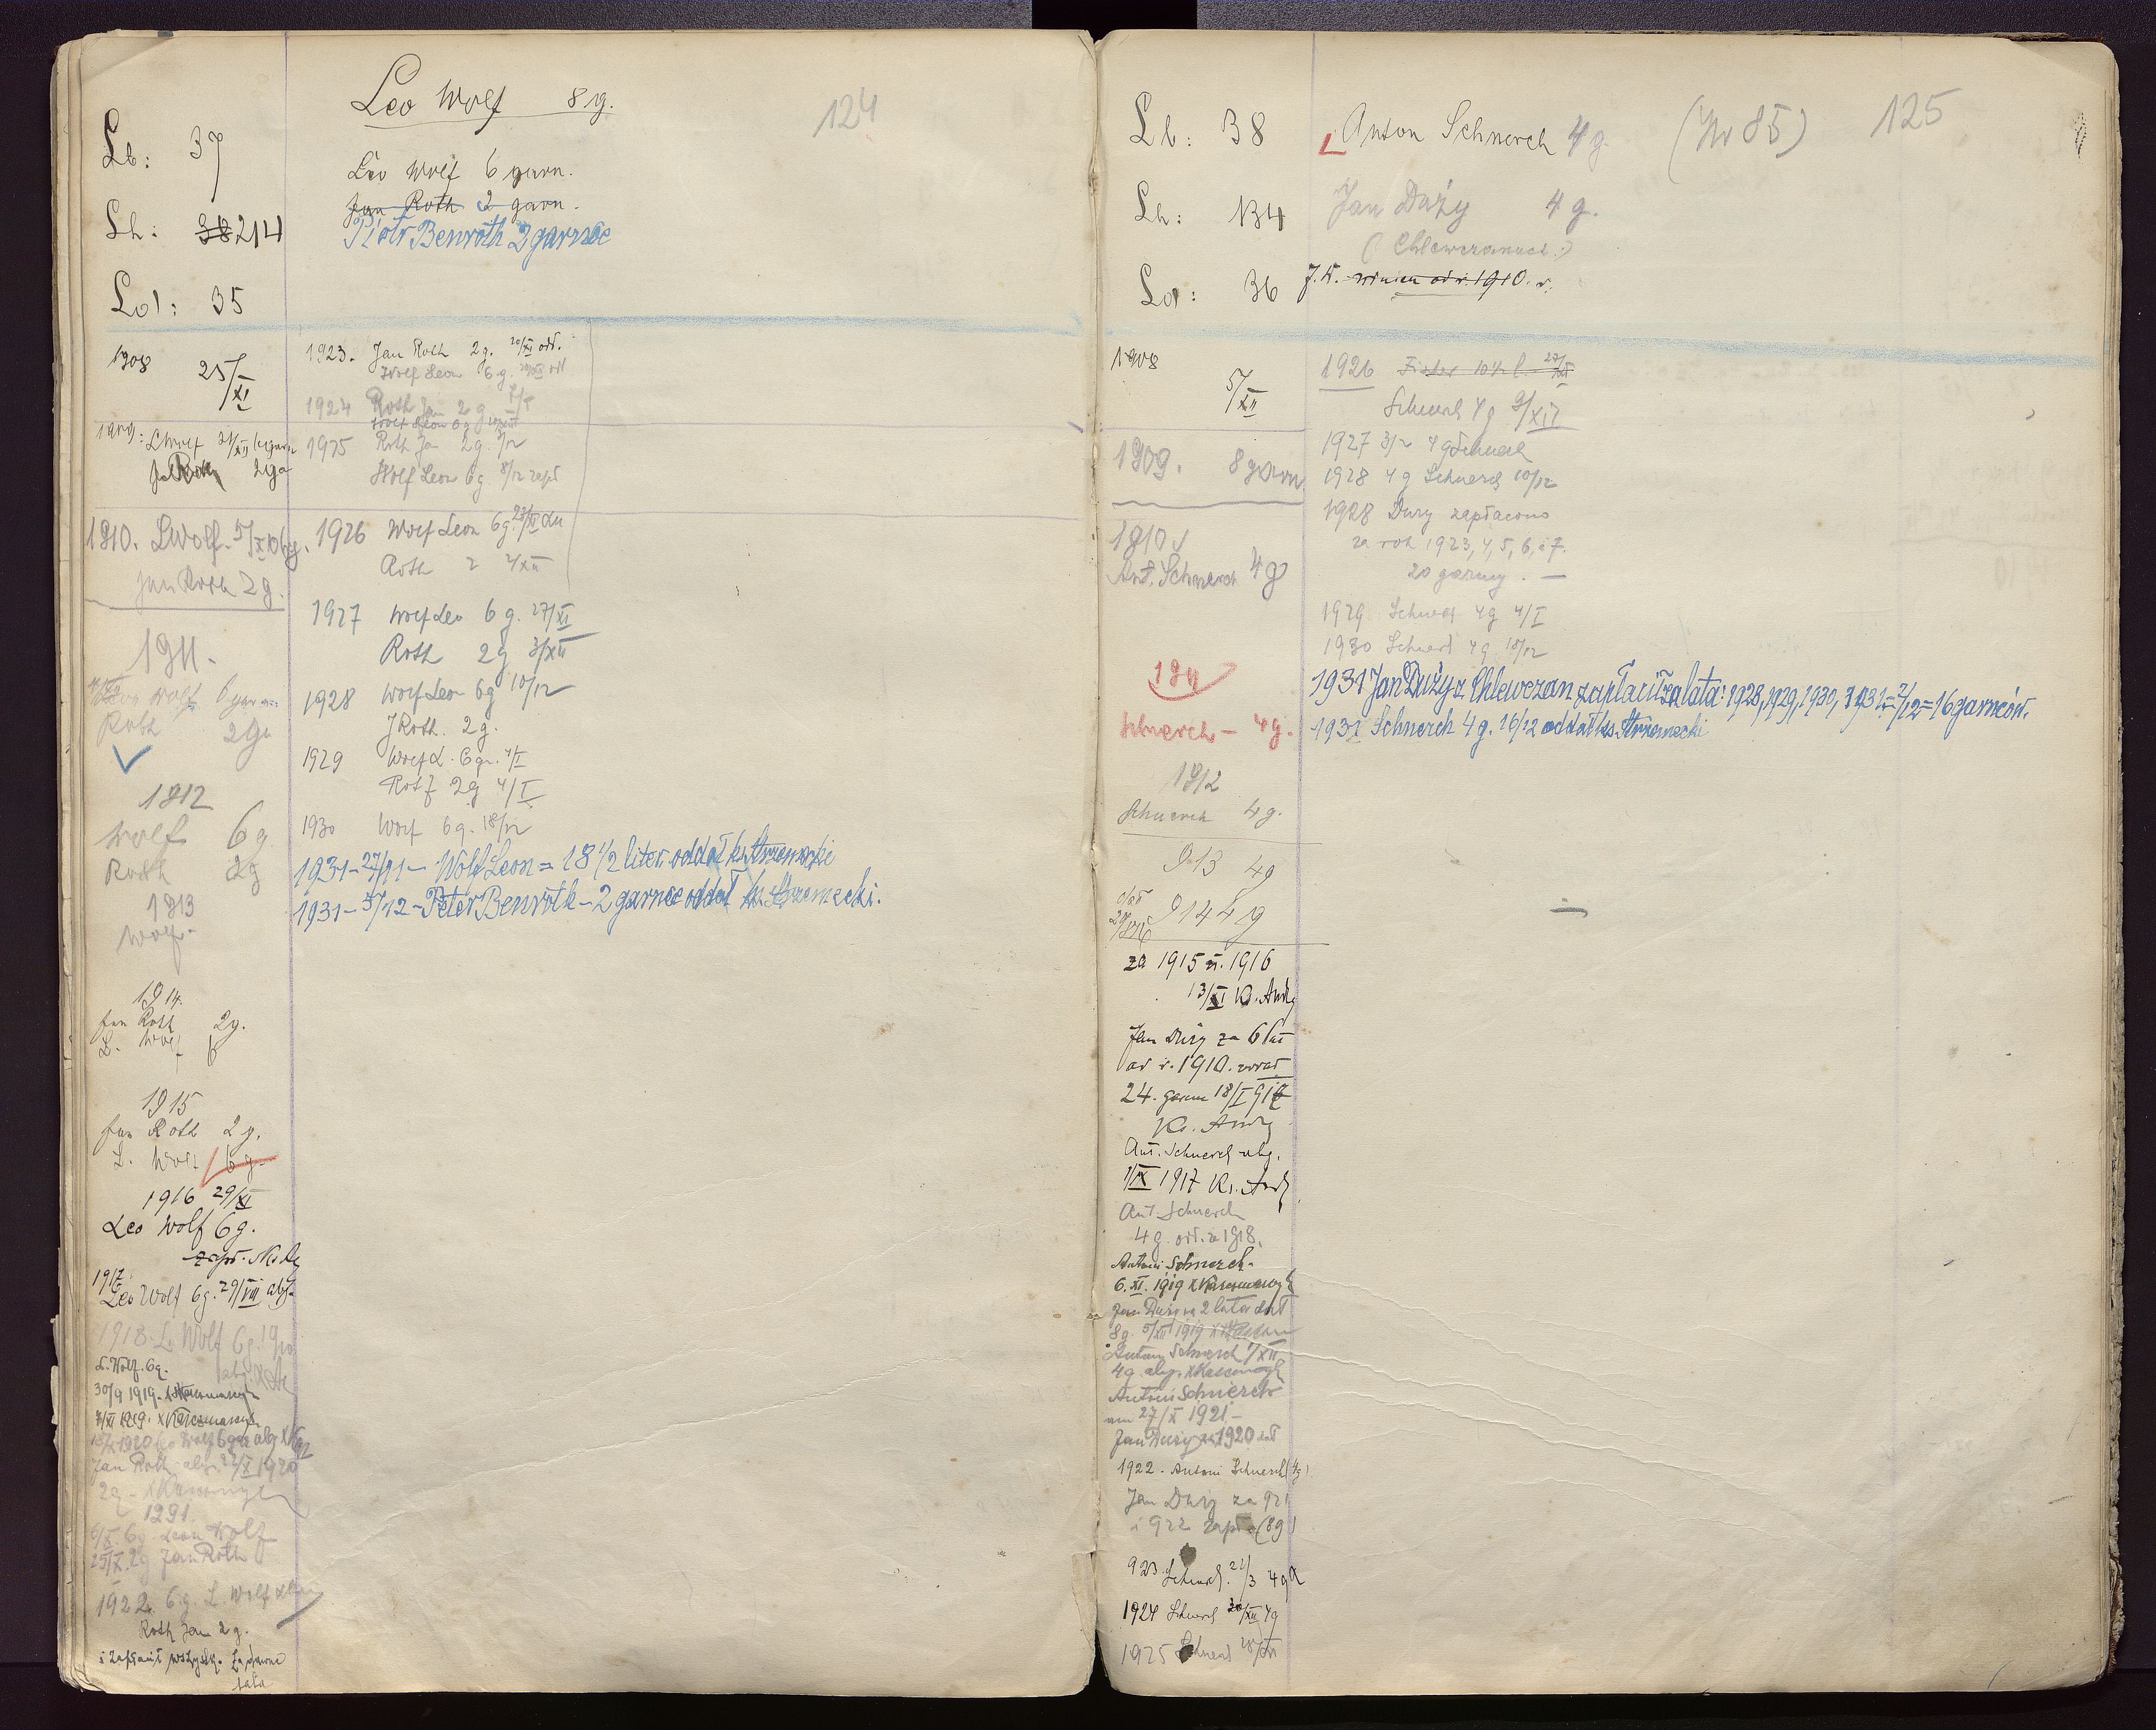 Leo Wolf 8 g.
124
Lb: 37
Leo Wolf 6 garn.
Jan Roth 2 garn.
Lh: 38 214
Piotr Benroth 2 garnce
Lol: 35
1908 25/XI
1909: L Wolf 21/XII 6 garn
Jan Roth 2 ga
1910. L Wolf. 5/X 6 g.
Jan Roth 2 g.
1911.
Leon Wolf 6 garn
Roth 2 ga
1912
Wolf 6 g
Roth 2 g
1913
Wolf
1914.
Jan Roth 2 g.
L. Wolf 6
1915
Jan Roth 2 g.
L. Wolf 6 g.
1916 29/XI
Leo Wolf 6 g.
1917.
Leo Wolf 6 g. 29/VIII abg.
1918. L. Wolf 6 g.
L. Wolf. 6 g.
30/9 1919.
1920 Leo Wolf 6 gar abg
Jan Roth abg. 1920
2 g
1291.
6/X 6 g. Leon Wolf
25/X 2 g Jan Roth
1922. 6 g. L. Wolf
Roth Jan 2 g.
i zapłacił wszystk. za dawne
lata
1923. Jan Roth 2 g. 20/XI odd.
Wolf Leon 6 g.
1924 Roth Jan 2 g
Wolf Leon 6 g
1925 Roth Jan 2 g.
Wolf Leon 6 g 8/12 zapł
1926 Wolf Leon 6 g. 27/XI
Roth 2 2/XII
1927 Wolf Leo 6 g. 27/XI
Roth 2 g 3/XII
1928 Wolf Leon 6 g 10/12
J Roth. 2 g.
1929 Wolf L. 6 gr. 4/I
Roth 2 g 4/I
1930 Wolf 6 g. 18/12
1931 – 27/11 – Wolf Leon = 18 1/2 liter. oddał ks. Strzemecki
1931 – 3/12 – Peter Benroth – 2 garnce oddał ks. Strzemecki.
Lb: 38 Anton Schnerch 4 g. (Nr 85) 125
Lh: 134 Jan Duży 4 g.
Lol: 36 J. D. winien od r. 1910. r.
1908 5/XII
1909. 8 garn
1910
Ant. Schnerch 4 g
1911
Schnerch – 4 g.
1912
Schnerch 4 g.
913 4 g
914 4 g
za 1915 i. 1916
13/XI Ks. Andrz
Jan Duży za 6 lat
od r. 1910. oddał
24. garnn 18/I 917
Ks. Andrz
Ant. Schnerch abg.
1/IX 1917 Ks. Andrz
Ant. Schnerch
4 g. odd. za 1918.
Antoni Schnerch.
6. XI. 1919
Jan Duży za 2 lata dał
8 g. 5/XII 1919
Antoni Schnerch 1/XII
4 g. abg.
Antoni Schnerch
27/X 1921. –
Jan Duży za 1920 dał
1922. Antoni Schnerch (4 g)
Jan Duży za 921
i 922 zapł (8 g)
923 Schnerch. 21/3 4 g
1924 Schnerch 30/XII 4 g
1925 Schnerch
1926
Schnerch 4 g 9/XII
1927 3/12 4 g Schnerch
1928 4 g Schnerch 10/12
1928 Duży zapłacono
za rok 1923, 4, 5, 6, i 7.
20 garncy. –
1929. Schnerch 4 g 4/I
1930 Schnerch 4 g 18/12
1931 Jan Duży z Chlewczan zapłacił za lata: 1928, 1929, 1930, 1931 – 2/12 = 16 garnców.
1931 Schnerch 4 g. 16/12 oddał ks. Strzemecki